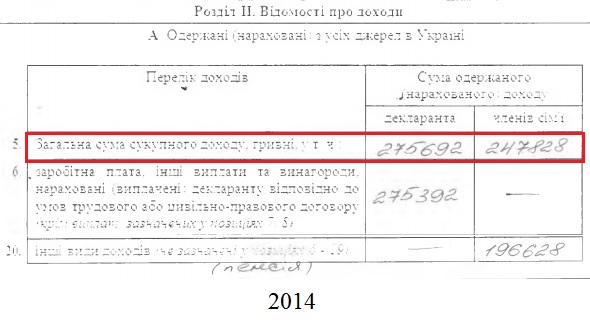 Розділ ІІ. Відомості про доходи
А. Одержані (нараховані) з усіх джерел в Україні
Перелік доходів
Сума одержаного
(нарахованого) доходу
декларанта членів сім'ї
5. Загальна сума сукупного доходу, гривні, у т. ч.: 275692 247828
6. заробітна плата, інші виплати та винагороди,
нараховані (виплачені) декларанту відповідно до
умов трудового або цивільно-правового договору
(крім виплат, зазначених у позиціях 7, 8)
275392 —
20. інші види доходів (не зазначені у позиціях 6 - 19) — 196628
(пенсія)
2014